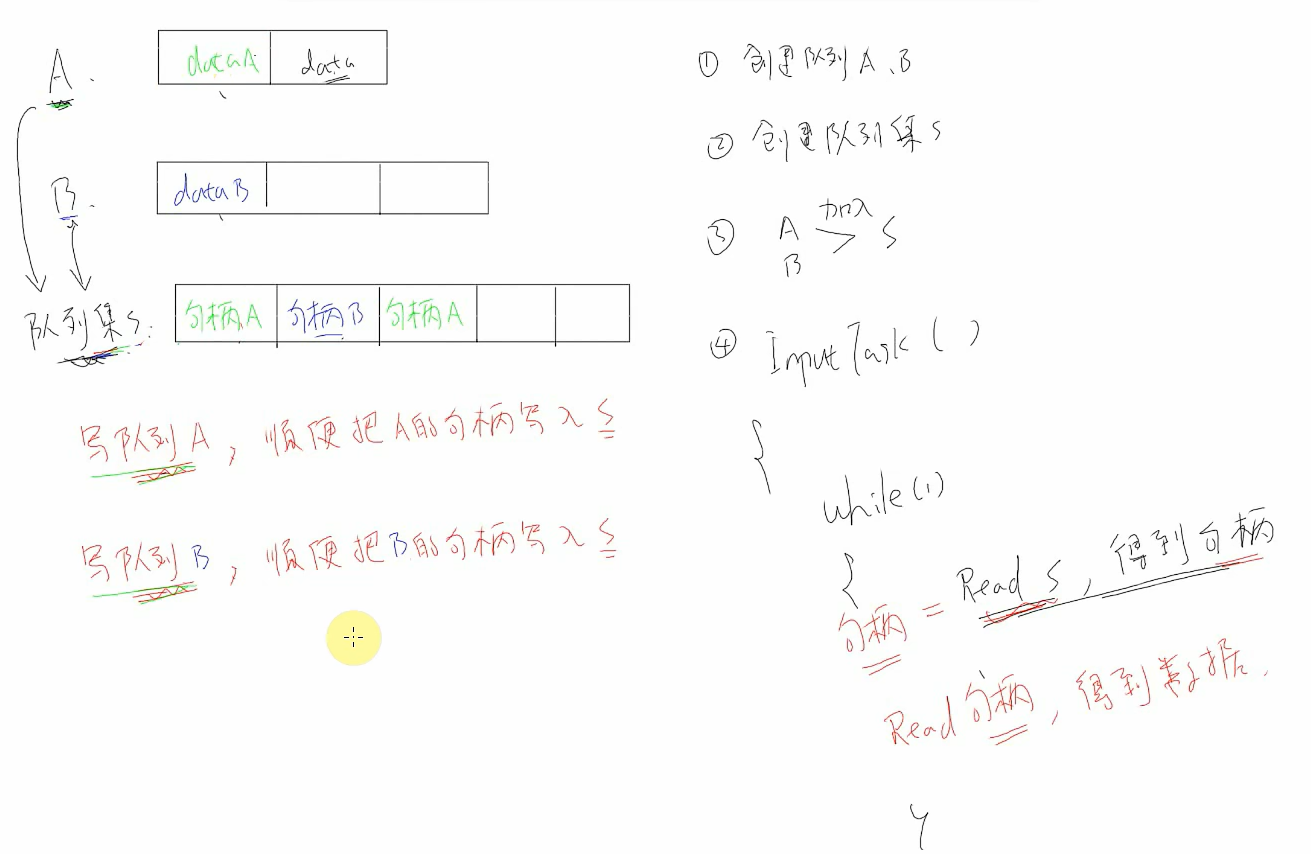 A.
dataA data
B.
dataB
队列集S:
句柄A 句柄B 句柄A
写队列A,顺便把A的句柄写入S
写队列B,顺便把B的句柄写入S
① 创建队列A、B
② 创建队列集S
③ A B 加入 S
④ InputTask()
{
while(1)
{
句柄 = Read S,得到句柄
Read 句柄,得到数据.
}